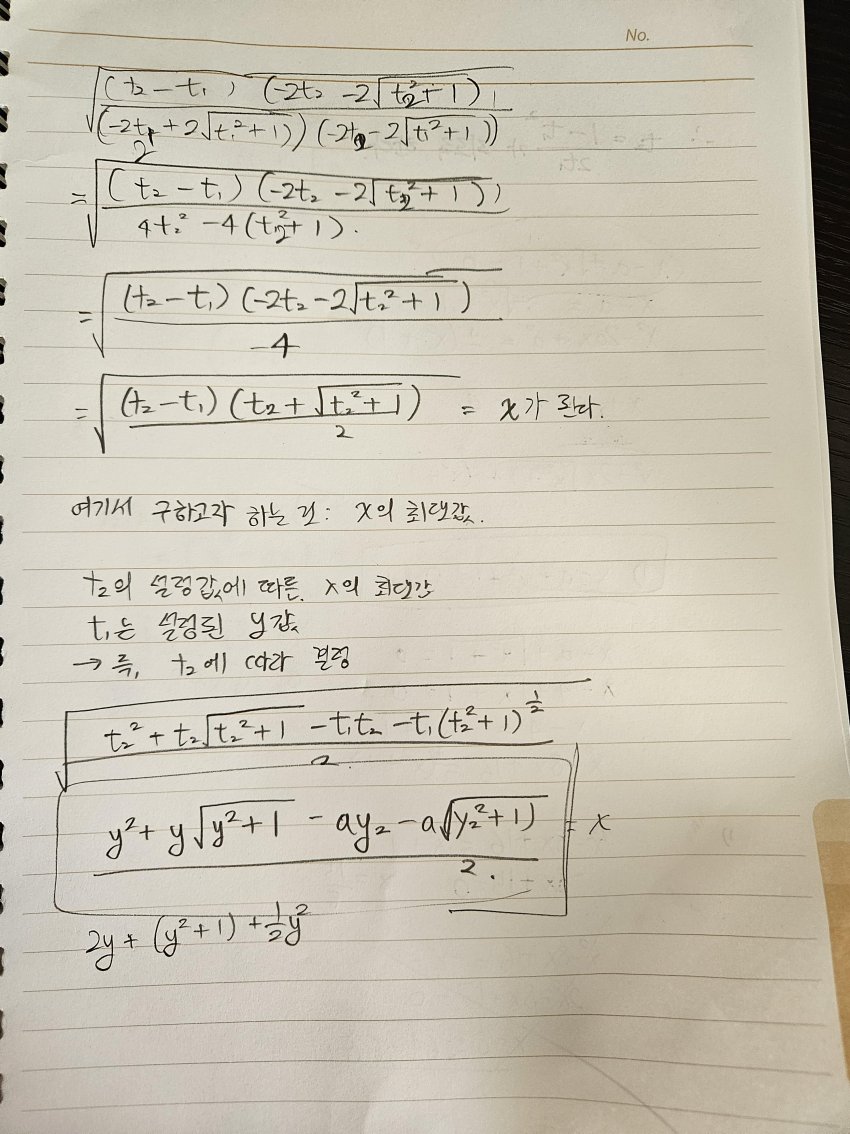 No.
√((t₂-t₁)(-2t₂-2√(t₂²+1)))
/ (-2t₂+2√(t₁²+1))(-2t₂-2√(t₁²+1))
= √((t₂-t₁)(-2t₂-2√(t₂²+1)) / 4t₂²-4(t₂²+1).
= √((t₂-t₁)(-2t₂-2√(t₂²+1)) / -4
= √((t₂-t₁)(t₂+√(t₂²+1)) / 2 = x가 된다.
여기서 구하고자 하는 것: x의 최댓값.
t₂의 설정값에 따른 x의 최댓값
t₁는 설정된 y값
→ 즉, t₂에 따라 결정
√(t₂²+t₂√(t₂²+1)-t₁t₂-t₁(t₂²+1)^½ / 2.
y²+y√(y²+1)-ay₂-a√(y₂²+1) / 2. = x
2y+(y²+1)+½y²